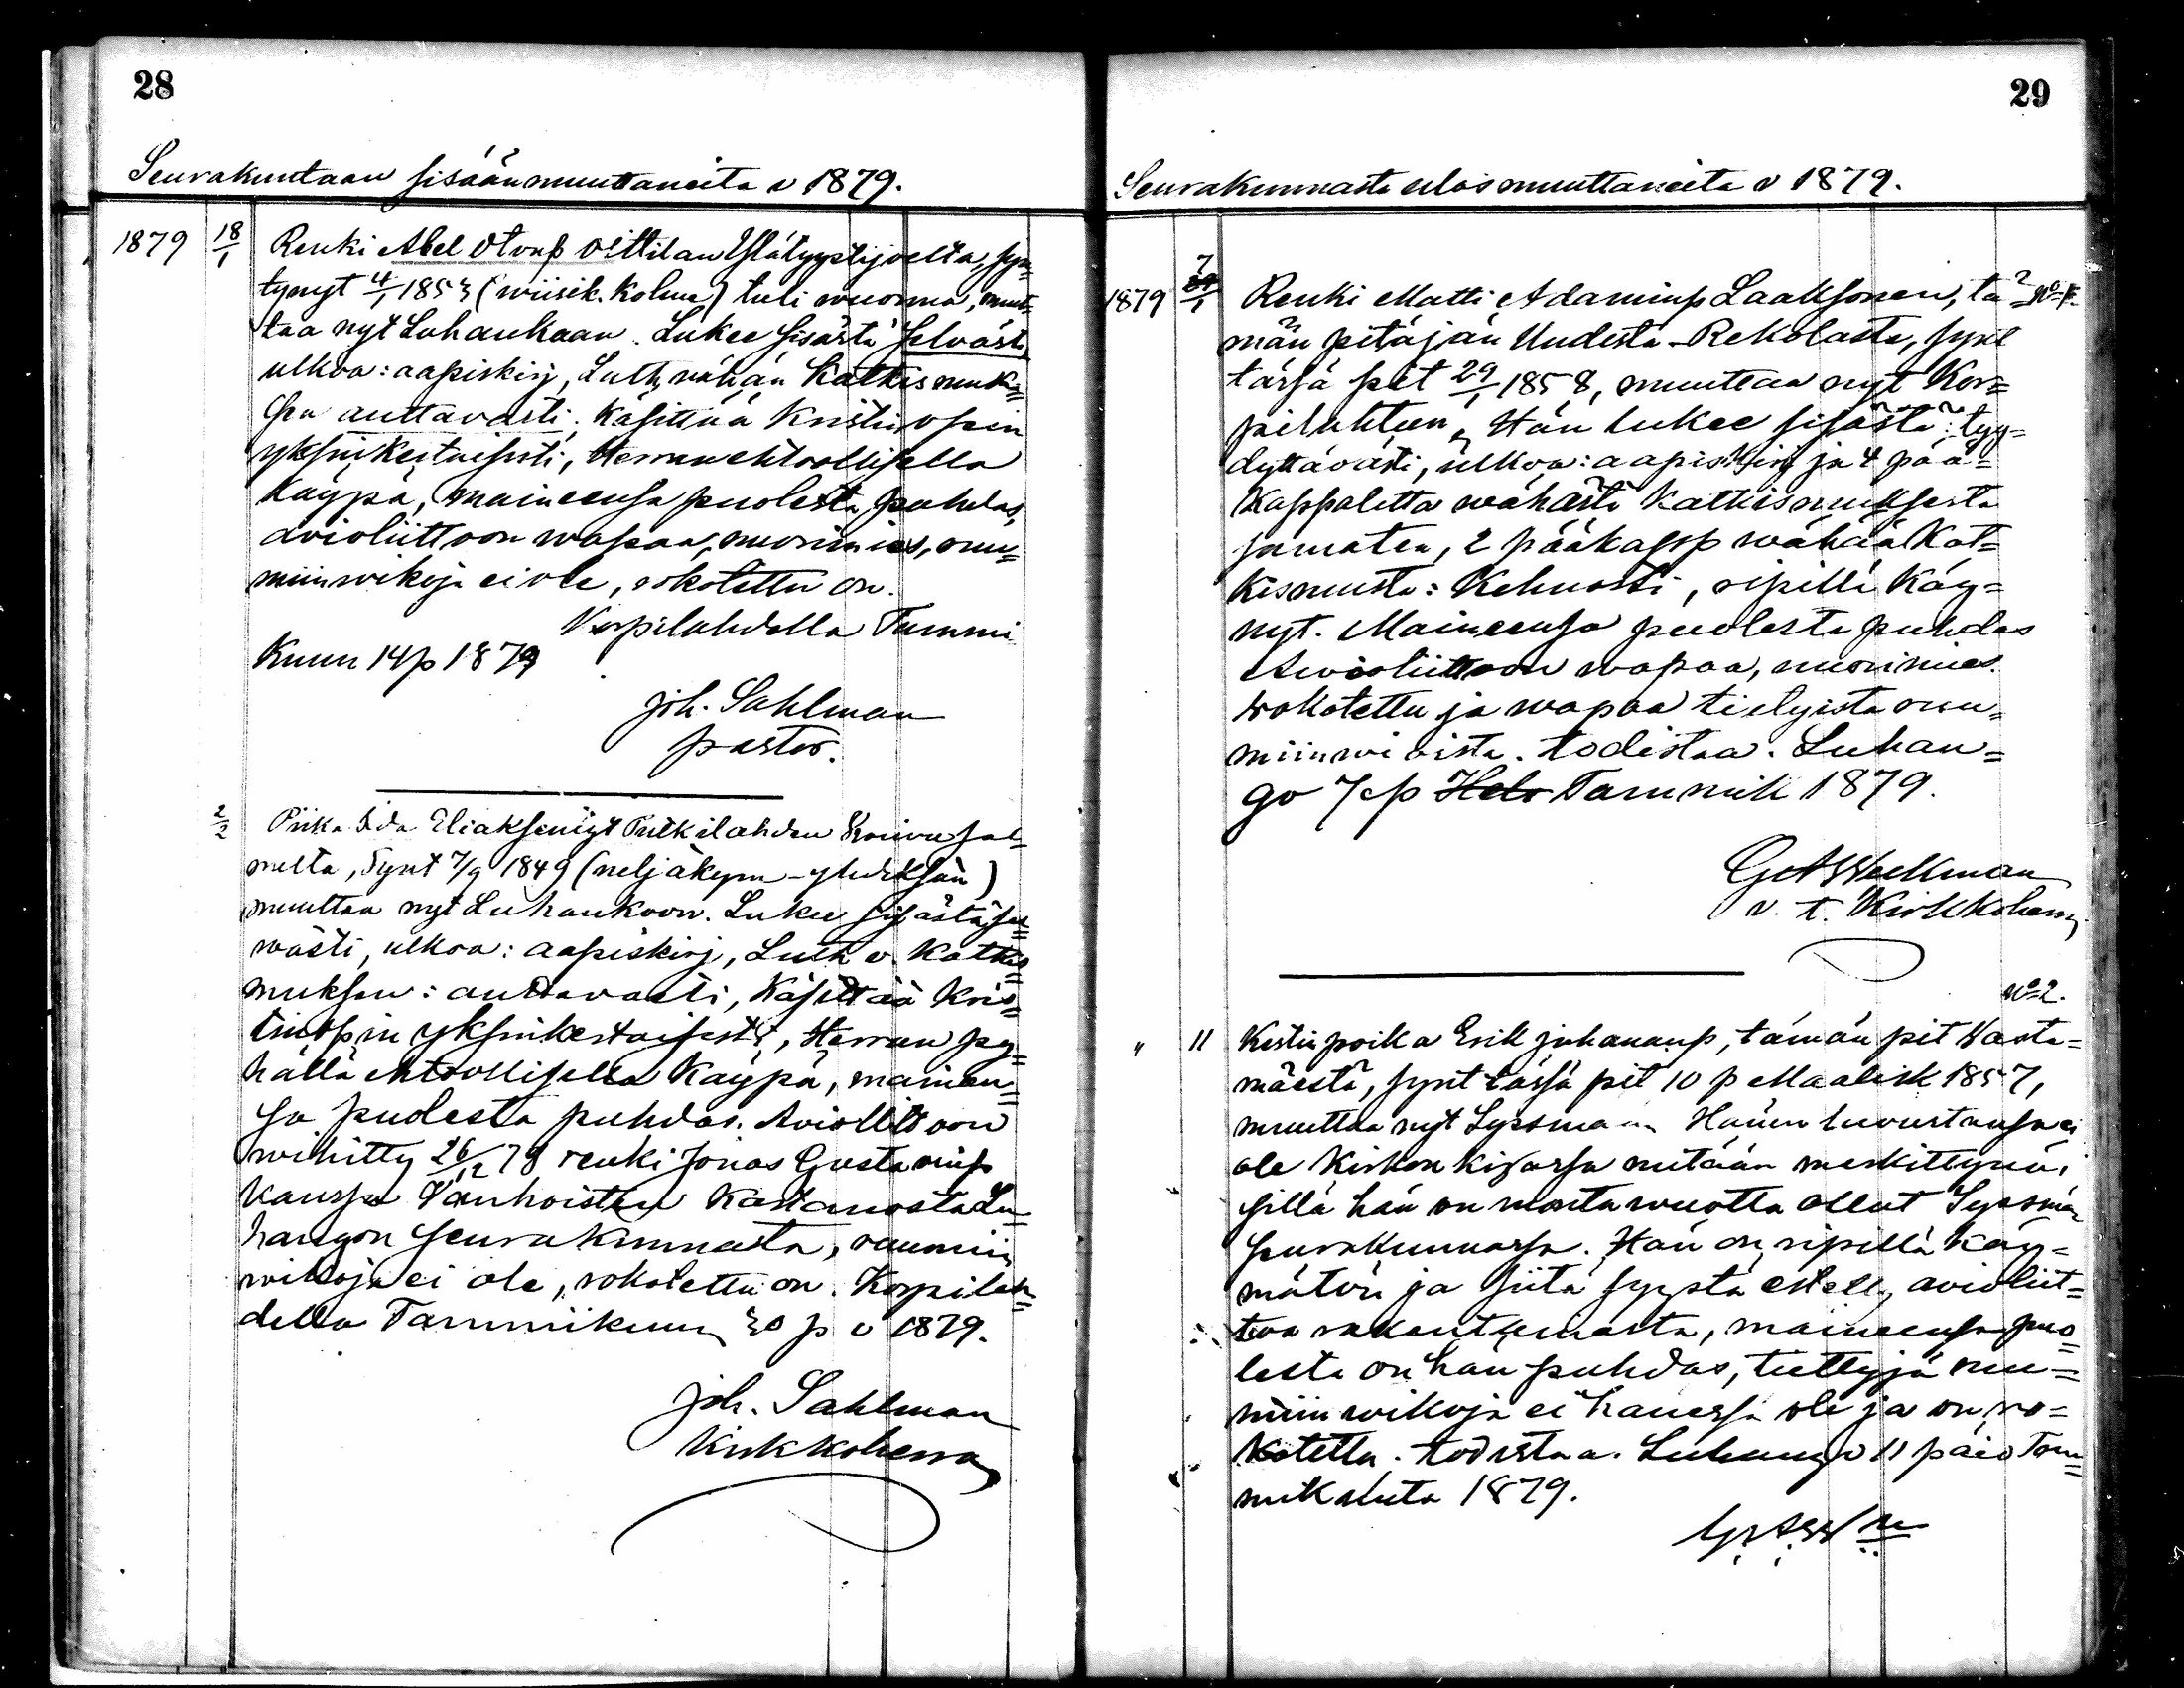 28
Seurakuntaan sisäänmuuttaneita v 1879.
1879 18/1 Renki Abel Otonp Oittilan Ylätyystijoelta, syn=
tynyt 4/1 1853 (wiisik. kolme) tuli wuonna, muut=
taa nyt Luhankaan. Lukee sisästä selvästi
ulkoa: aapiskirj, Luth vähän Katkismuk=
sen auttavasti. Käsittää Kristinopin
yksinkertaisesti, Herranehtoollisella
käypä, maineensa puolesta puhdas,
avioliittoon wapaa, nuorimies, ruu=
miinwikoja ei ole, rokotettu on.
Korpilahdella Tammi
kuun 14 p 1879
Joh. Sahlman
pastor.
2/2 Piika Ida Eliaksentyt Putkilahden Koivusal=
melta, Synt 7/9 1849 (neljäkym-yhdeksän)
muuttaa nyt Luhankoon. Lukee sisästä sel=
wästi, ulkoa: aapiskirj, Luth v. Katkis=
muksen: auttavasti, Käsittää Kris=
tinopin yksinkertaisesti, Herran py=
hällä ehtoollisella käypä, mainen=
sa puolesta puhdas. Aviollittoon
wihitty 26/12 78 renki Jonas Gustavinp
kanssa Vanhoisten Kostamosta Lu=
hangon seurakunnasta, ruumiin
wikoja ei ole, rokotettu on. Korpilah=
della Tammikuun 30 p v 1879.
Joh. Sahlman
Kirkkoherra
29
Seurakunnasta ulosmuuttaneita v 1879.
1879 7/1 Renki Matti Adaminp Laaksonen, tä= No 1.
män pitäjän Uudesta-Rekolasta, synt
tässä pit 29/1 1858, muuttaa nyt Kor=
pilahteen. Hän lukee sisästä: tyy=
dyttävästi, ulkoa: aapiskirj ja 4 pää=
kappaletta wähästä Katkismuksesta
samaten, 2 pääkapp wähää Kat=
kismusta: Kehnosti, ripillä käy=
nyt. Maineensa puolesta puhdas
Awioliittoon wapaa, nuorimies.
rokotettu ja wapaa tietyistä ruu=
miinwioista. todistaa. Luhan=
go 7 p Helv Tammik 1879.
G A Weckman
v. t. Kirkkoherra
No 2.
" 11 Kestinpoika Erik Juhananp, tämän pit Wasta=
mäestä, synt tässä pit 10 p Maalisk 1857,
muuttaa nyt Syssmään Hänen luvustansa ei
ole Kirkon kirjassa mitään merkittynä,
sillä hän on monta wuotta ollut Syssmän
seurakunnassa. Hän on ripillä käy=
mätön ja siitä syystä estetty avioliit=
toa rakentamasta, maineensa puo=
lesta on hän puhdas, tiettyjä ruu=
miinwikoja ei hänessä ole ja on ro=
kotettu. todistaa. Luhango 11 päiv Tam=
mikuuta 1879.